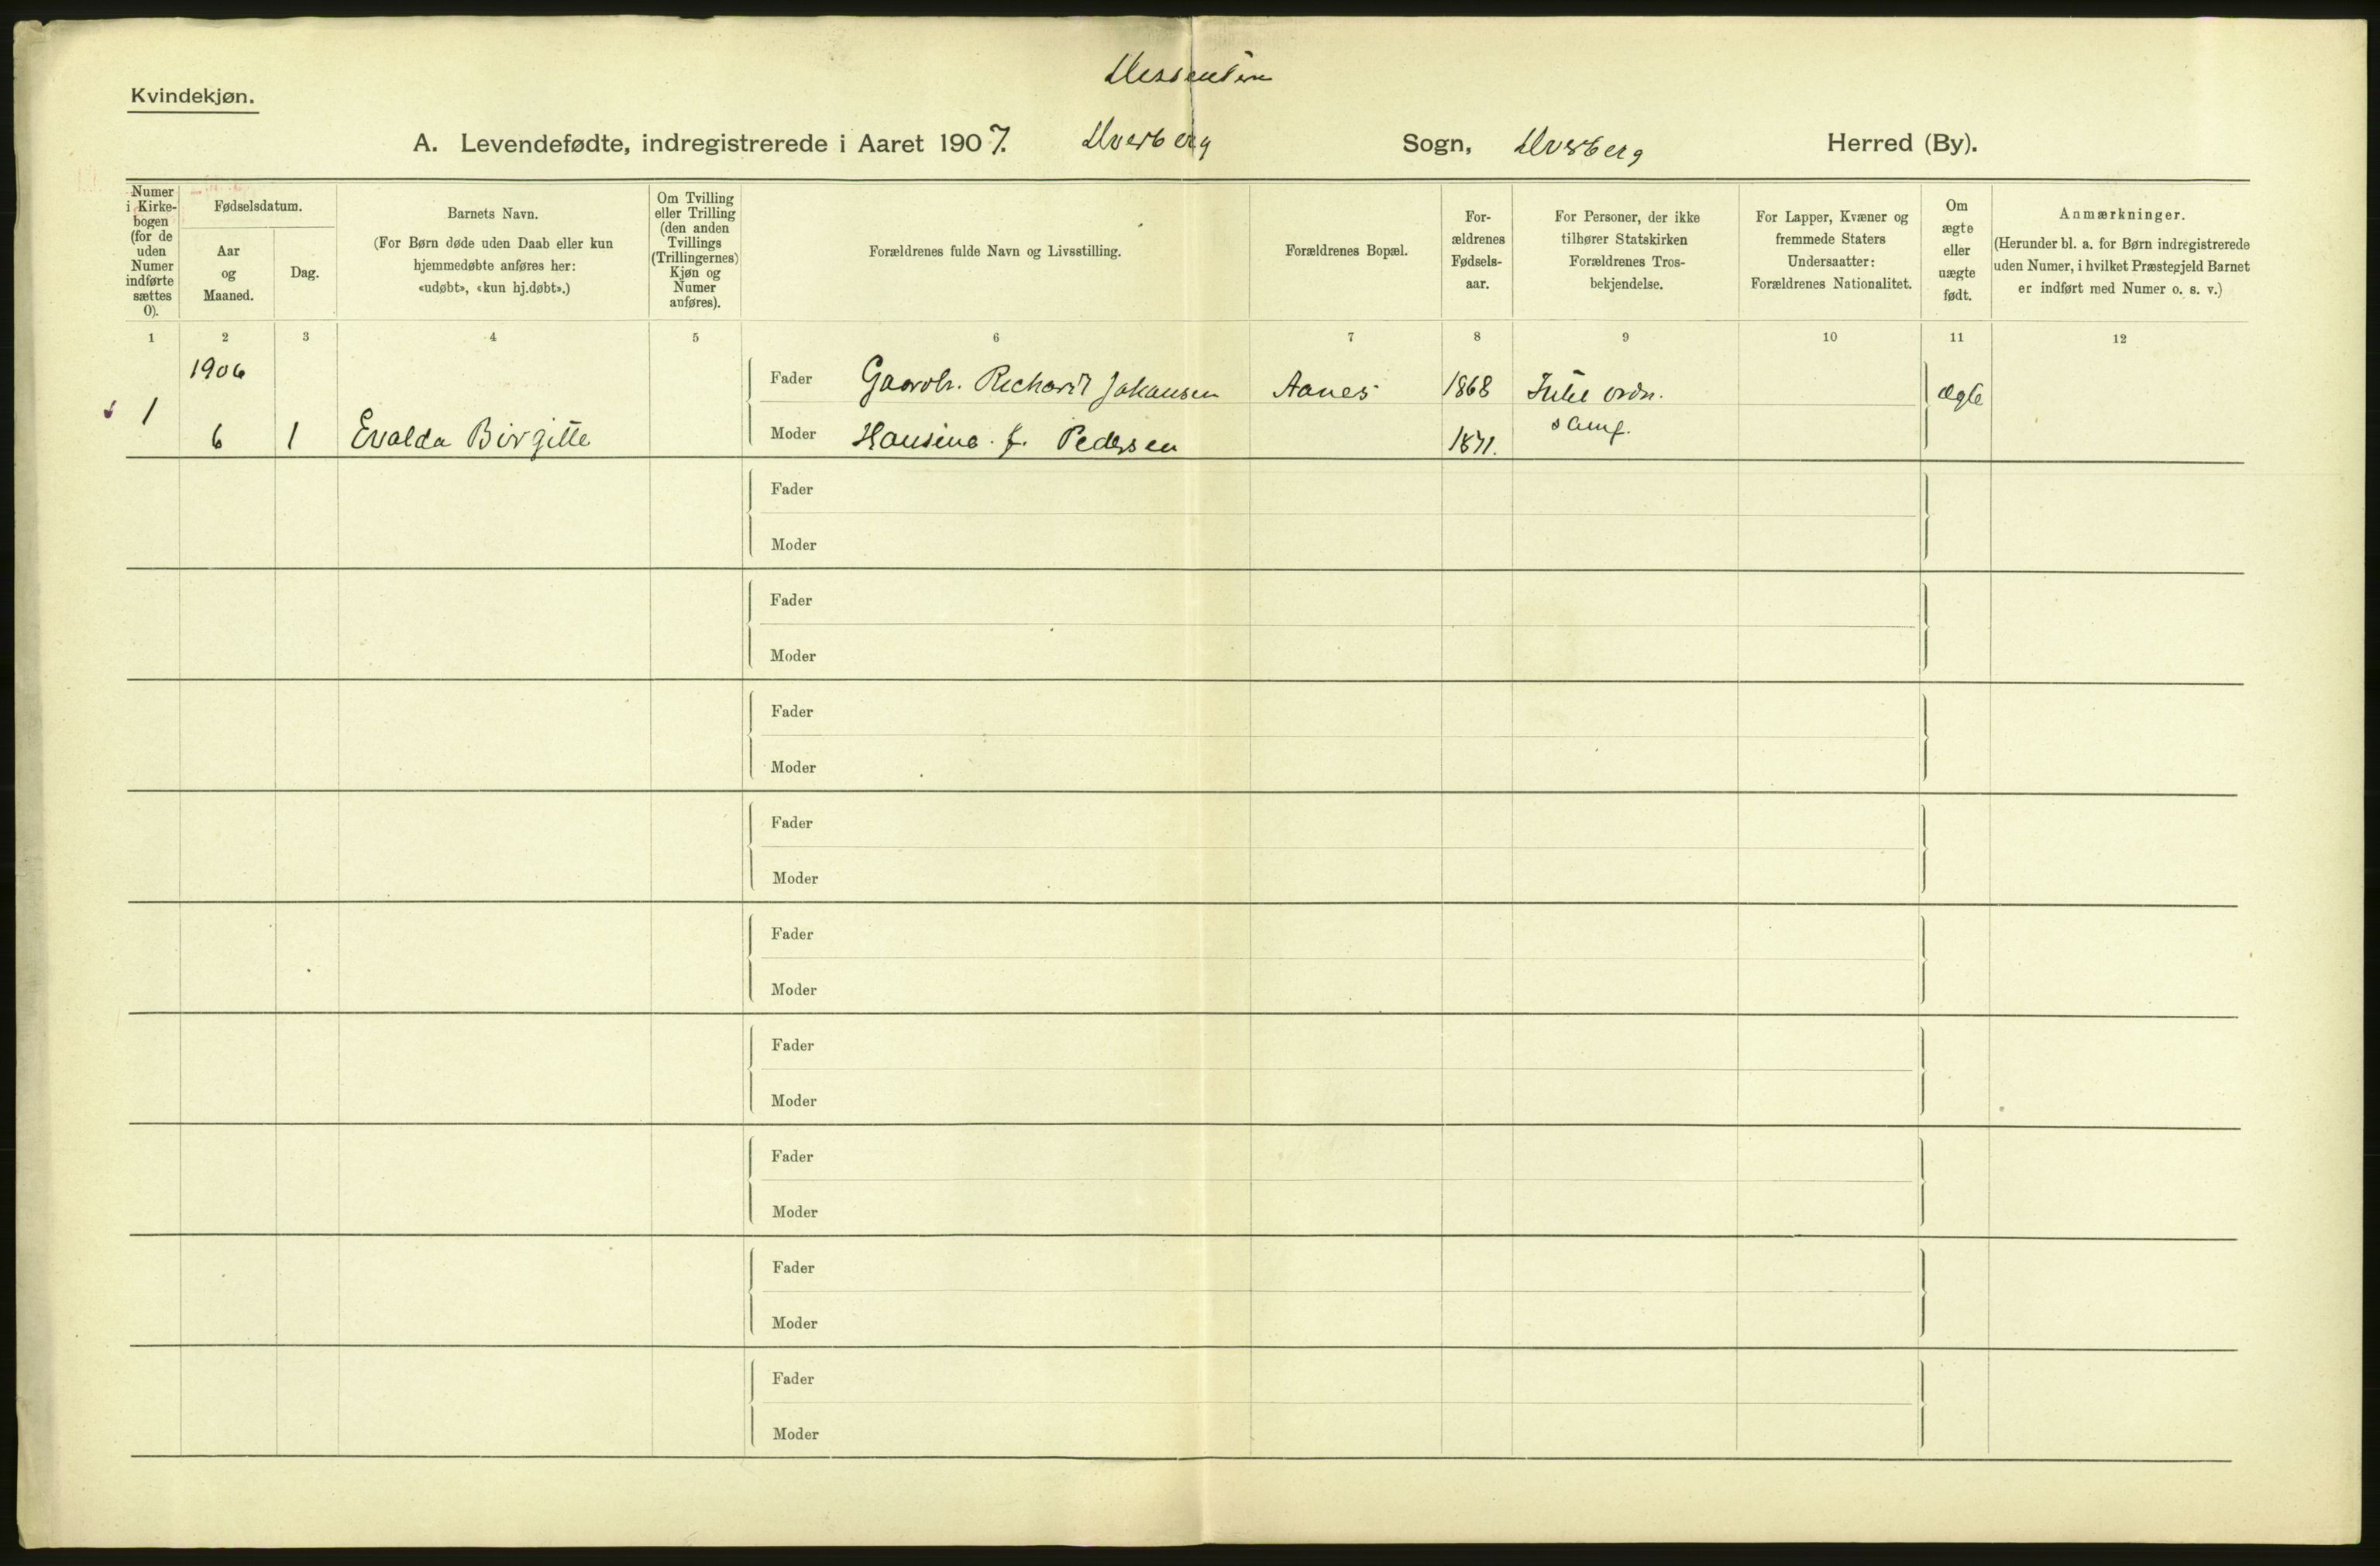 Dissentere
Kvindekjøn.
A. Levendefødte, indregistrerede i Aaret 1907. Dverberg Sogn, Dverberg Herred (By).
Numer i Kirkebogen (for de uden Numer indførte sættes 0).
Fødselsdatum.
Aar og Maaned.
Dag.
Barnets Navn.
(For Børn døde uden Daab eller kun
hjemmedøbte anføres her:
«udøbt», «kun hj.døbt».)
Om Tvilling
eller Trilling
(den anden
Tvillings
(Trillingernes)
Kjøn og
Numer
anføres).
Forældrenes fulde Navn og Livsstilling.
Forældrenes Bopæl.
For-
ældrenes
Fødsels-
aar.
For Personer, der ikke
tilhører Statskirken
Forældrenes Tros-
bekjendelse.
For Lapper, Kvæner og
fremmede Staters
Undersaatter:
Forældrenes Nationalitet.
Om
ægte
eller
uægte
født.
Anmærkninger.
(Herunder bl. a. for Børn indregistrerede
uden Numer, i hvilket Præstegjeld Barnet
er indført med Numer o. s. v.)
1 2 3 4 5 6 7 8 9 10 11 12
1906
Fader Gaardb. Richard Johansen Aanes 1868 ordn. Ægte
1
6 1 Evalda Birgitte Moder Hansine f. Pedersen 1871. samf.
Fader
Moder
Fader
Moder
Fader
Moder
Fader
Moder
Fader
Moder
Fader
Moder
Fader
Moder
Fader
Moder
Fader
Moder